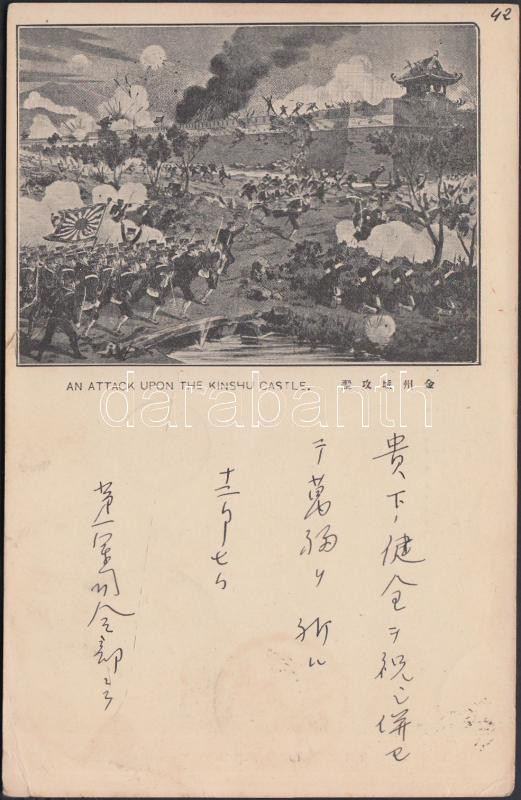 42
AN ATTACK UPON THE KINSHU CASTLE.
金州城攻撃
darabanth
貴下ノ健全ヲ祝シ併セ
テ萬福ヲ祈ル
十二月七日
第一軍司令部ニテ